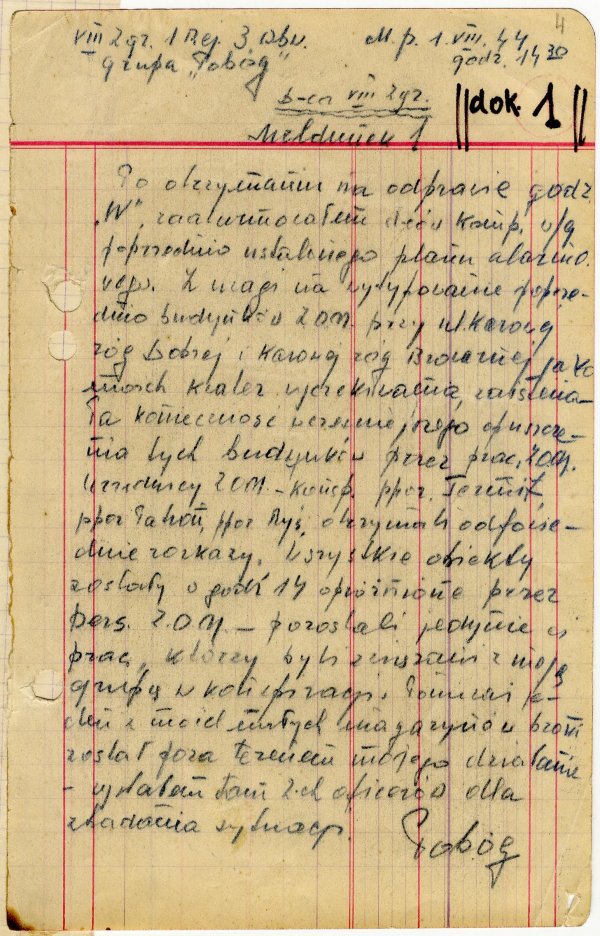 4
VIII Zgr. 1 Rej. 3. Obw. M. p. 1. VIII. 44
Grupa "Pobóg" godz. 14 30
D-ca VIII Zgr.
||dok. 1||
Meldunek 1
Po otrzymaniu na odprawie godz.
"W", zaalarmowałem dców komp. w/g
poprzednio ustalonego planu alarmo-
wego. Z uwagi na wytypowanie poprze-
dnio budynków ZOM. przy ul. Karowej
róg Dobrej i Karowej róg Browarnej jako
m wyczekiwania, zaistnia-
ła konieczność wcześniejszego opuszcze-
nia tych budynków przez prac. ZOM.
Urzędnicy ZOM. - konsp. ppor. Termit,
ppor. ppor. Ryś, otrzymali odpowie-
dnie rozkazy. Wszystkie obiekty
zostały o godz 14 opróżnione przez
pers. Z.O.M. - pozostali jedynie ci
prac., którzy byli związani z moją
grupą w konspiracji. Ponieważ je-
den z moich małych magazynów broni
został poza terenem mojego działania
- wysłałem tam 2-ch oficerów dla
zbadania sytuacji.
Pobóg